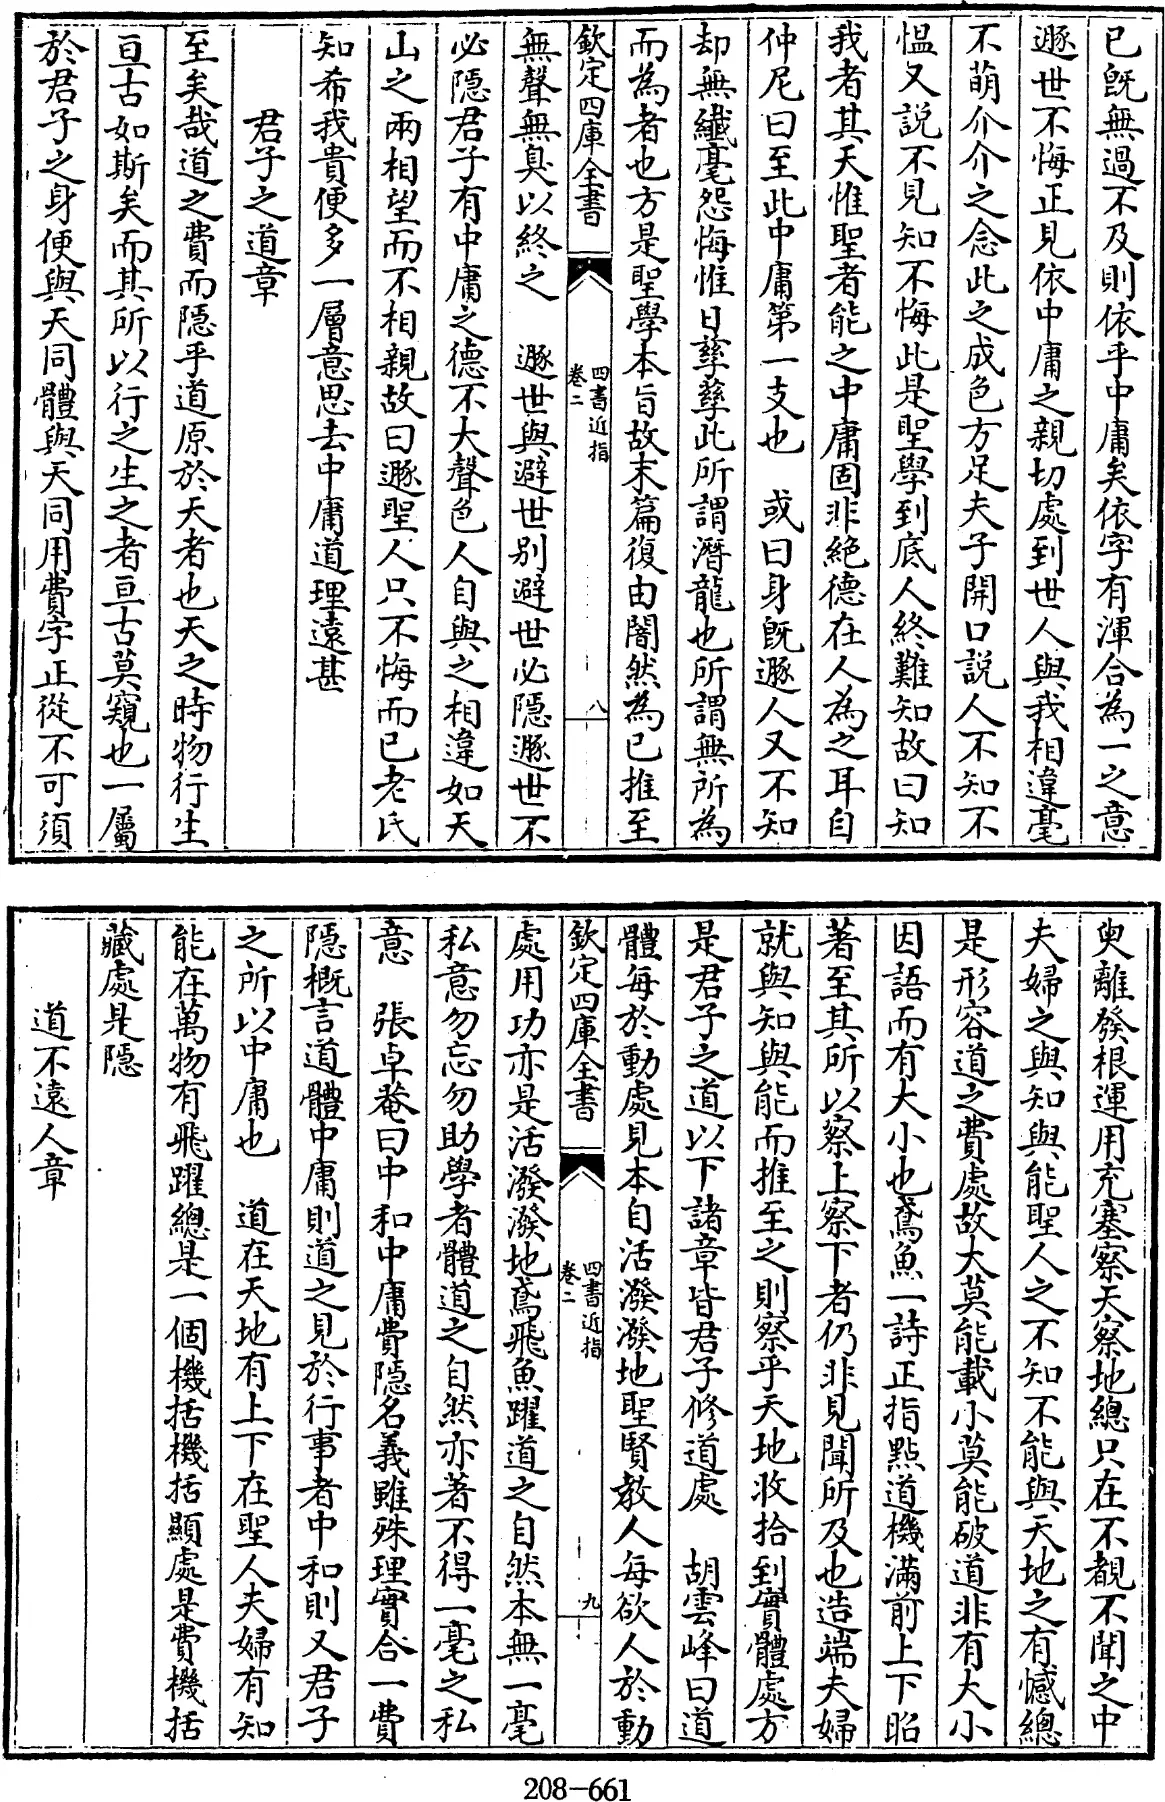 已既無過不及則依乎中庸矣依字有渾合為一之意
遯世不悔正見依中庸之親切處到世人與我相違毫
不萌介介之念此之成色方足夫子開口説人不知不
愠又説不見知不悔此是聖學到底人終難知故曰知
我者其天惟聖者能之中庸固非絶德在人為之耳自
仲尼曰至此中庸第一支也　或曰身既遯人又不知
却無纎毫怨悔惟日孳孳此所謂潛龍也所謂無所為
而為者也方是聖學本旨故末篇復由闇然為已推至
欽定四庫全書
四書近指
卷二
八
無聲無臭以終之　遯世與避世别避世必隱遯世不
必隱君子有中庸之德不大聲色人自與之相違如天
山之兩相望而不相親故曰遯聖人只不悔而已老氏
知希我貴便多一層意思去中庸道理遠甚
君子之道章
至矣哉道之費而隱乎道原於天者也天之時物行生
亘古如斯矣而其所以行之生之者亘古莫窺也一屬
於君子之身便與天同體與天同用費字正從不可須
臾離發根運用充塞察天察地總只在不覩不聞之中
夫婦之與知與能聖人之不知不能與天地之有憾總
是形容道之費處故大莫能載小莫能破道非有大小
因語而有大小也鳶魚一詩正指點道機滿前上下昭
著至其所以察上察下者仍非見聞所及也造端夫婦
就與知與能而推至之則察乎天地收拾到實體處方
是君子之道以下諸章皆君子修道處　胡雲峰曰道
體每於動處見本自活潑潑地聖賢教人每欲人於動
欽定四庫全書
四書近指
卷二
九
處用功亦是活潑潑地鳶飛魚躍道之自然本無一毫
私意勿忘勿助學者體道之自然亦著不得一毫之私
意　張卓菴曰中和中庸費隱名義雖殊理實合一費
隱概言道體中庸則道之見於行事者中和則又君子
之所以中庸也　道在天地有上下在聖人夫婦有知
能在萬物有飛躍總是一個機括機括顯處是費機括
藏處是隱
道不遠人章
208-661